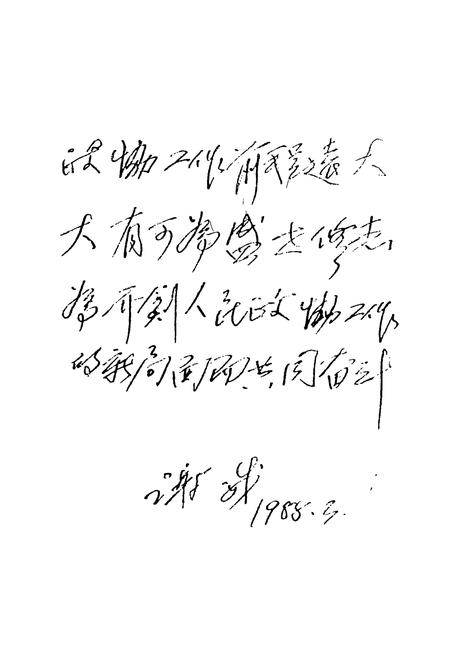 政协工作前程远大
大有可为盛世修志
为开创人民政协工作
的新局面而共同奋斗
谢
1988.3.